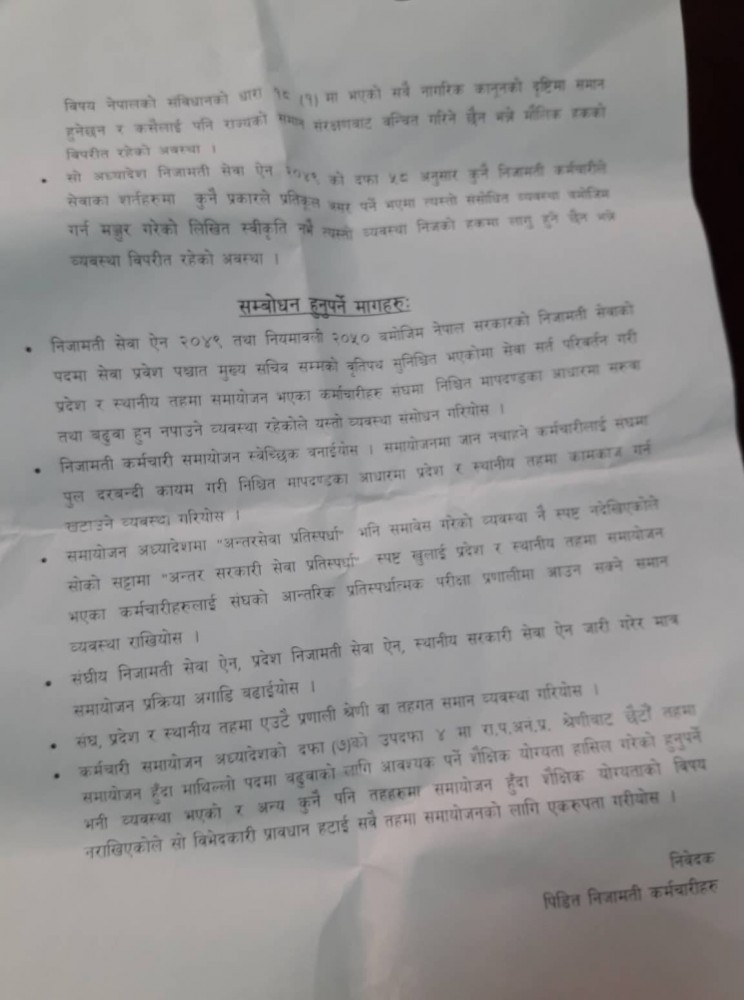 विषय नेपालको संविधानको धारा १८ (१) मा भएको सबै नागरिक कानूनको दृष्टिमा समान
हुनेछन र कसैलाई पनि राज्यको समान संरक्षणबाट वन्चित गरिने छैन भन्ने मौलिक हकको
विपरीत रहेको अवस्था ।
• सो अध्यादेश निजामती सेवा ऐन २०४९ को दफा ५८ अनुसार कुनै निजामती कर्मचारीले
सेवाका शर्तहरुमा कुनै प्रकारले प्रतिकूल असर पर्ने भएमा त्यस्तो संसोधित व्यवस्था बमोजिम
गर्न मञ्जुर गरेको लिखित स्वीकृति नभै त्यस्तो व्यवस्था निजको हकमा लागु हुने छैन भन्ने
व्यबस्था विपरीत रहेको अवस्था ।
सम्बोधन हुनुपर्ने मागहरुः
• निजामती सेवा ऐन २०४९ तथा नियमावली २०५० बमोजिम नेपाल सरकारको निजामती सेवाको
पदमा सेवा प्रवेश पश्चात मुख्य सचिव सम्मको वृतिपथ सुनिश्चित भएकोमा सेवा सर्त परिवर्तन गरी
प्रदेश र स्थानीय तहमा समायोजन भएका कर्मचारीहरु संघमा निश्चित मापदण्डका आधारमा सरुवा
तथा बढुवा हुन नपाउने व्यबस्था रहेकोले यस्तो व्यबस्था संसोधन गरियोस ।
• निजामती कर्मचारी समायोजन स्वेच्छिक बनाईयोस । समायोजनमा जान नचाहने कर्मचारीलाई संघमा
पुल दरबन्दी कायम गरी निश्चित मापदण्डका आधारमा प्रदेश र स्थानीय तहमा कामकाज गर्न
खटाउने व्यबस्था गरियोस ।
• समायोजन अध्यादेशमा "अन्तरसेवा प्रतिस्पर्धा" भनि समावेस गरेको व्यबस्था नै स्पष्ट नदेखिएकोले
सोको सट्टामा "अन्तर सरकारी सेवा प्रतिस्पर्धा" स्पष्ट खुलाई प्रदेश र स्थानीय तहमा समायोजन
भएका कर्मचारीहरुलाई संघको आन्तरिक प्रतिस्पर्धात्मक परीक्षा प्रणालीमा आउन सक्ने समान
व्यवस्था राखियोस ।
• संघीय निजामती सेवा ऐन, प्रदेश निजामती सेवा ऐन, स्थानीय सरकारी सेवा ऐन जारी गरेर मात्र
समायोजन प्रक्रिया अगाडि बढाईयोस ।
• संघ, प्रदेश र स्थानीय तहमा एउटै प्रणाली श्रेणी वा तहगत समान व्यबस्था गरियोस ।
• कर्मचारी समायोजन अध्यादेशको दफा (७)को उपदफा ४ मा रा.प.अनं.प्र. श्रेणीबाट छैटौं तहमा
समायोजन हुँदा माथिल्लो पदमा बढुवाको लागि आवश्यक पर्ने शैक्षिक योग्यता हासिल गरेको हुनुपर्ने
भनी व्यबस्था भएको र अन्य कुनै पनि तहहरुमा समायोजन हुँदा शैक्षिक योग्यताको विषय
नराखिएकोले सो विभेदकारी प्रावधान हटाई सबै तहमा समायोजनको लागि एकरुपता गरीयोस ।
निवेदक
पिडित निजामती कर्मचारीहरु